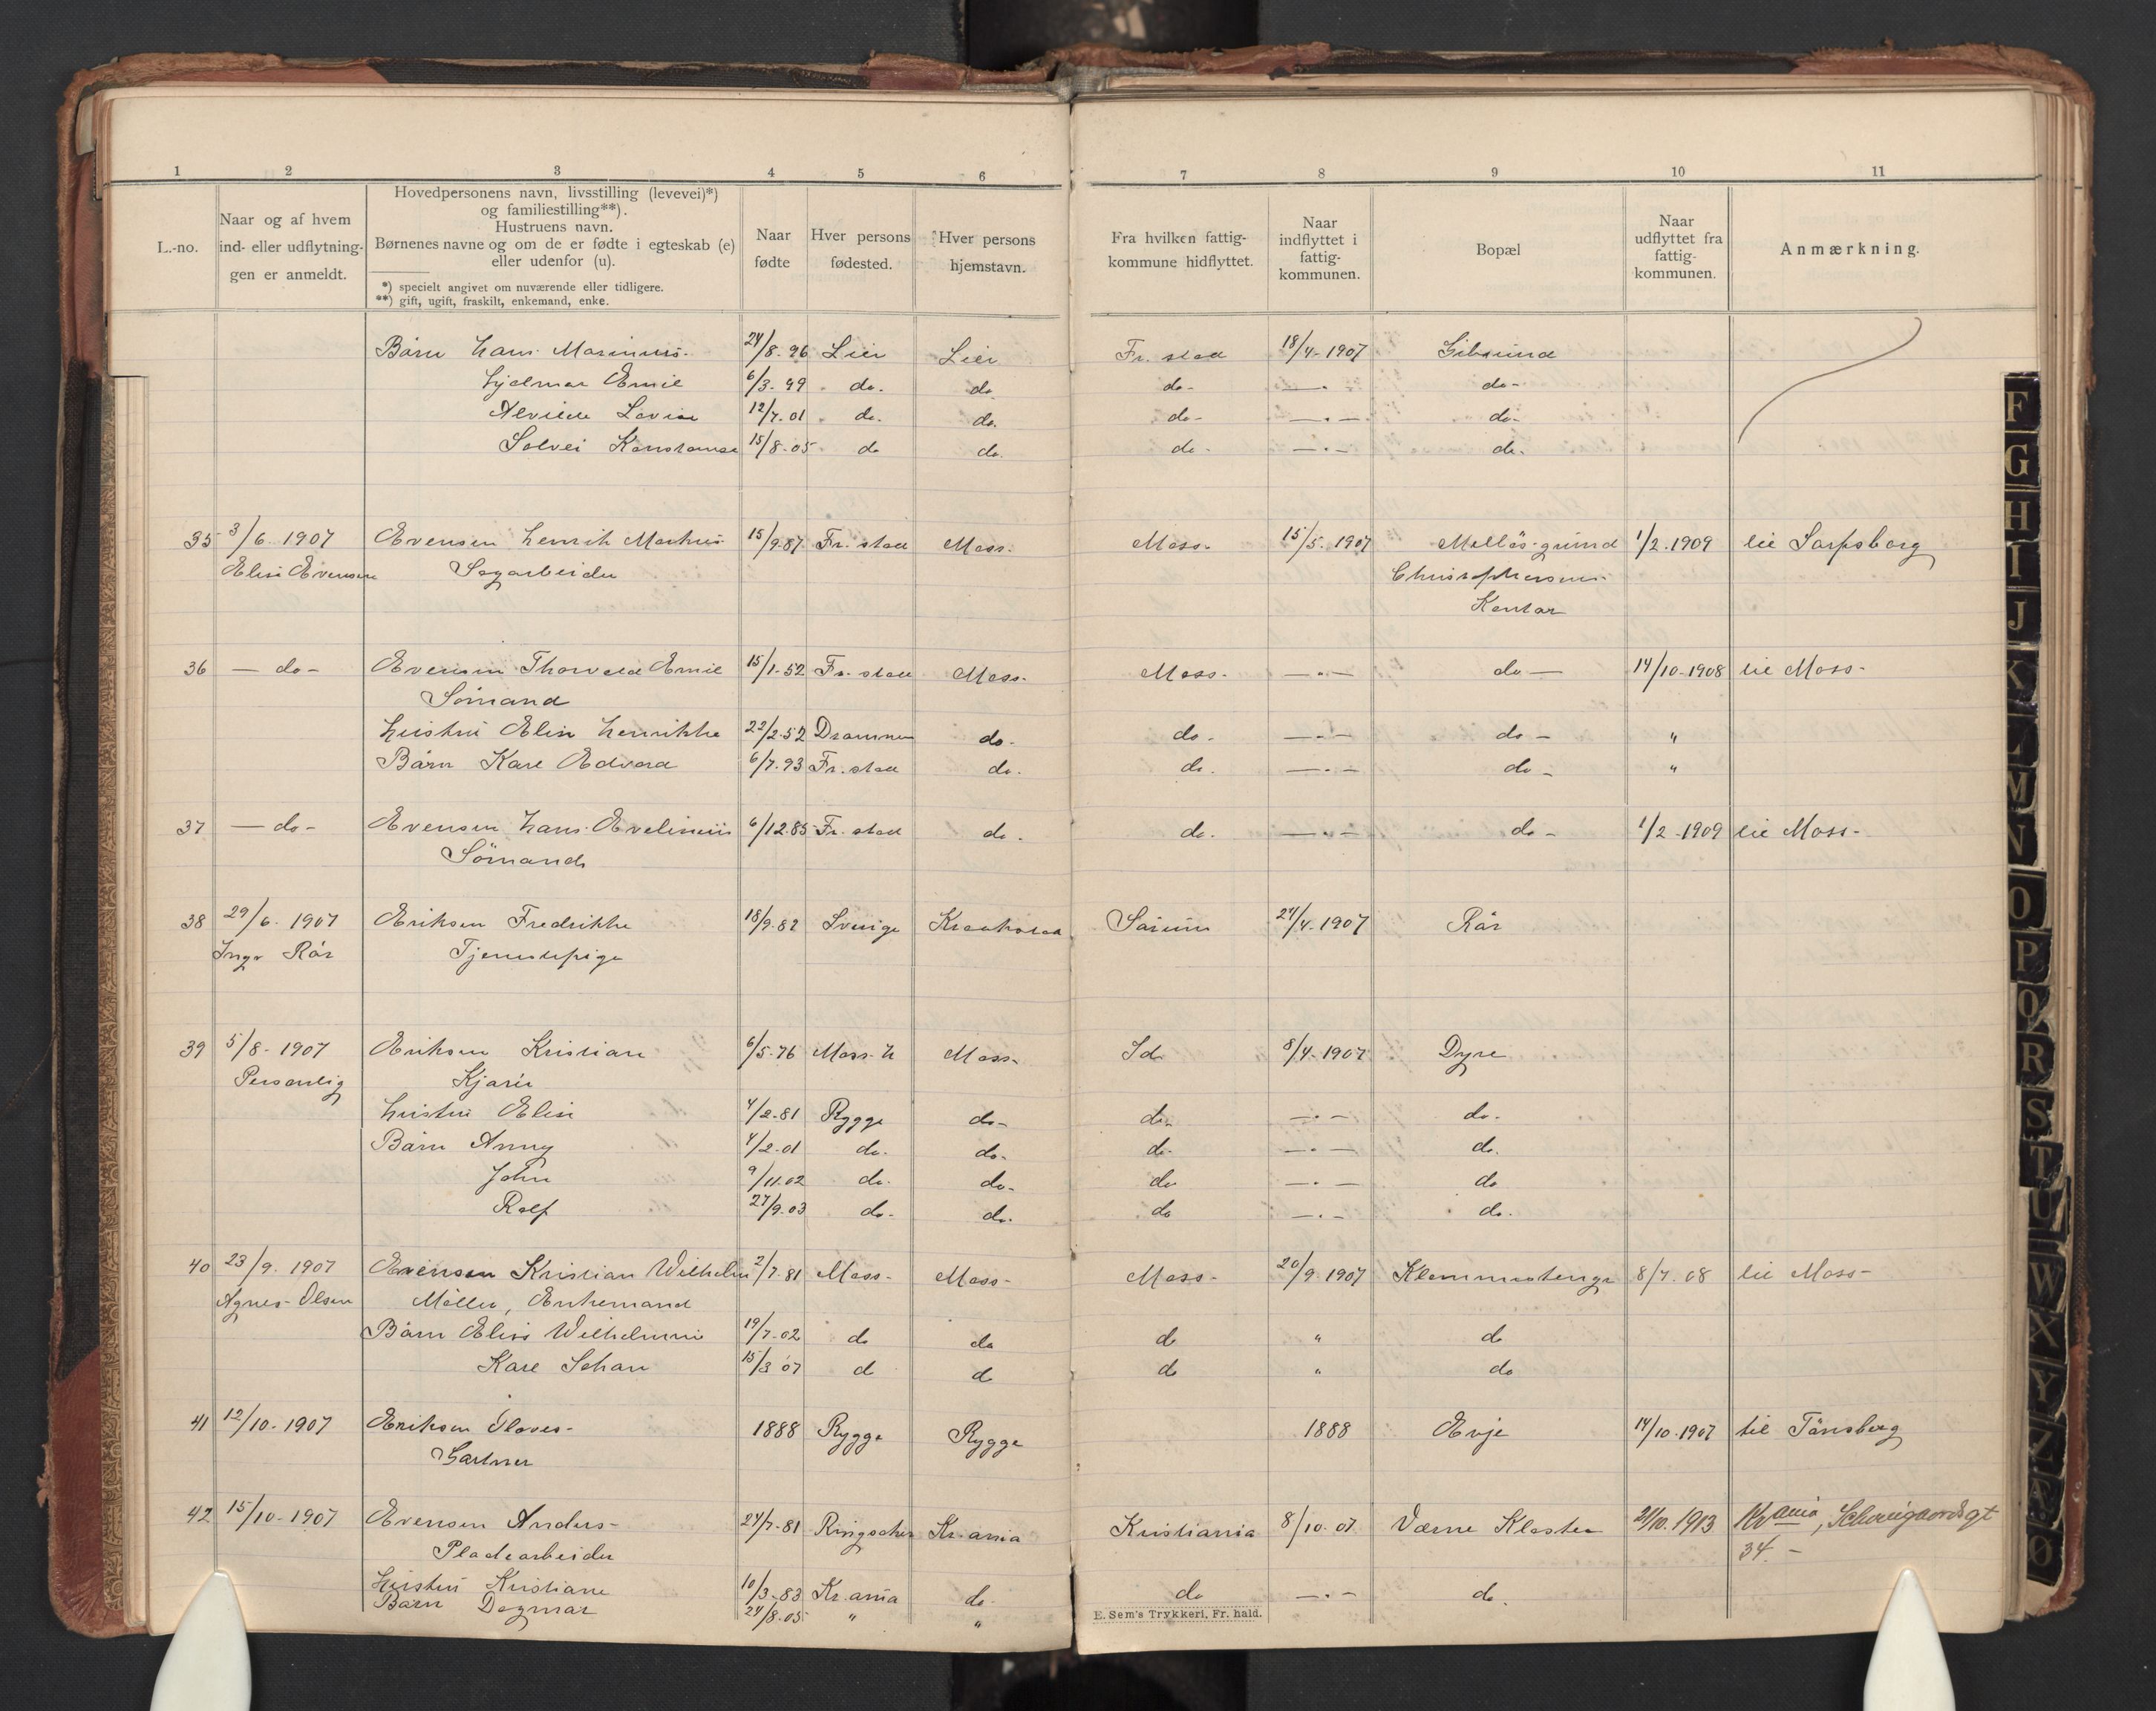 1 2 3 4 5 6 7 8 9 10 11
L.-no.
Naar og af hvem
ind- eller udflytnin-
gen er anmeldt.
Hovedpersonens navn, livsstilling (levevei)*)
og familiestilling**).
Hustruens navn.
Børnenes navne og om de er fødte i egteskab (e)
eller udenfor (u).
*) specielt angivet om nuværende eller tidligere.
**) gift, ugift, fraskilt, enkemand, enke.
Naar
fødte
Hver persons
fødested.
Hver persons
hjemstavn.
Fra hvilken fattig-
kommune hidflyttet.
Naar
indflyttet i
fattig-
kommunen.
Bopæl
Naar
udflyttet fra
fattig-
kommunen.
Anmærkning.
Børn Hans Marinius. 24/8. 96 Lier Lier Fr. stad 18/4-1907
Hjelmar Emil 6/3-99 do. do. do- —·— do-
12/7.01 do. do. do- —·— do-
Solvei Konstanse 15/8-05 do do. do- —·— do.
35 3/6. 1907 Evensen Henrik Markus 15/9.87 Fr. stad Moss. Moss. 15/5. 1907 Melløs-grund 1/2.1909 til Sarpsborg
Elise Evensen Sagarbeider
Kontor
36 — do- Evensen Thorvald Emil 15/1-52 Fr. stad Moss. Moss. —·— do — 14/10-1908 til Moss-
Sømand
Hustru Elin Henrikke 22/2-52 Drammen do- do. —·— do — "
Børn Karl Edvard 6/7.93 Fr. stad do. do. —·— do — "
37 — do- Evensen Hans 6/12.85 Fr. stad do. do. —·— do — 1/2-1909 til Moss-
Sømand
38 29/6. 1907 Eriksen Fredrikke 18/9.82 Sverige Sarum 27/4-1907 Rør
Inga Rør Tjenestepige
39 5/8-1907 Eriksen Kristian 6/5-76 Moss. Moss. Id 8/4-1907 Dyre
Personlig
Hustru Elise 4/2-81 Rygge do- do. —·— do.
Børn Anny 4/2-01 do. do- do- —·— do.
John 9/11.02 do. do- do —·— do
Rolf 27/9.03 do. do. do —·— do.
40 23/9. 1907 Evensen Kristian Wilhelm 2/7.81 Moss- Moss- Moss- 20/9. 1907 8/7.08 til Moss-
Agnes Olsen Møller, Enkemand
Børn Elise Wilhelmine 19/7-02 do do do " do
Karl Johan 15/3 07 do do do " do
41 12/10-1907 Eriksen 1888 Rygge Rygge 1888 Evje 14/10-1907 til Tønsberg
Gartner
42 15/10-1907 Evensen Anders- 24/7-81 Ringsaker Kr.ania Kristiania 8/10.07 Værne Kloster 21/10.1913 Kr.ania, Schweigaardsgt
Pladearbeider 34.-
Hustru Kristiane 10/3-83 Kr.ania do. do —·— do.
Børn Dagmar 24/8.05 " "
E. Sem's Trykkeri, Fr. hald.
F
G
H
I
J
K
L
M
N
O
P
Q
R
S
T
U
W
X
Y
Z
Æ
Ø